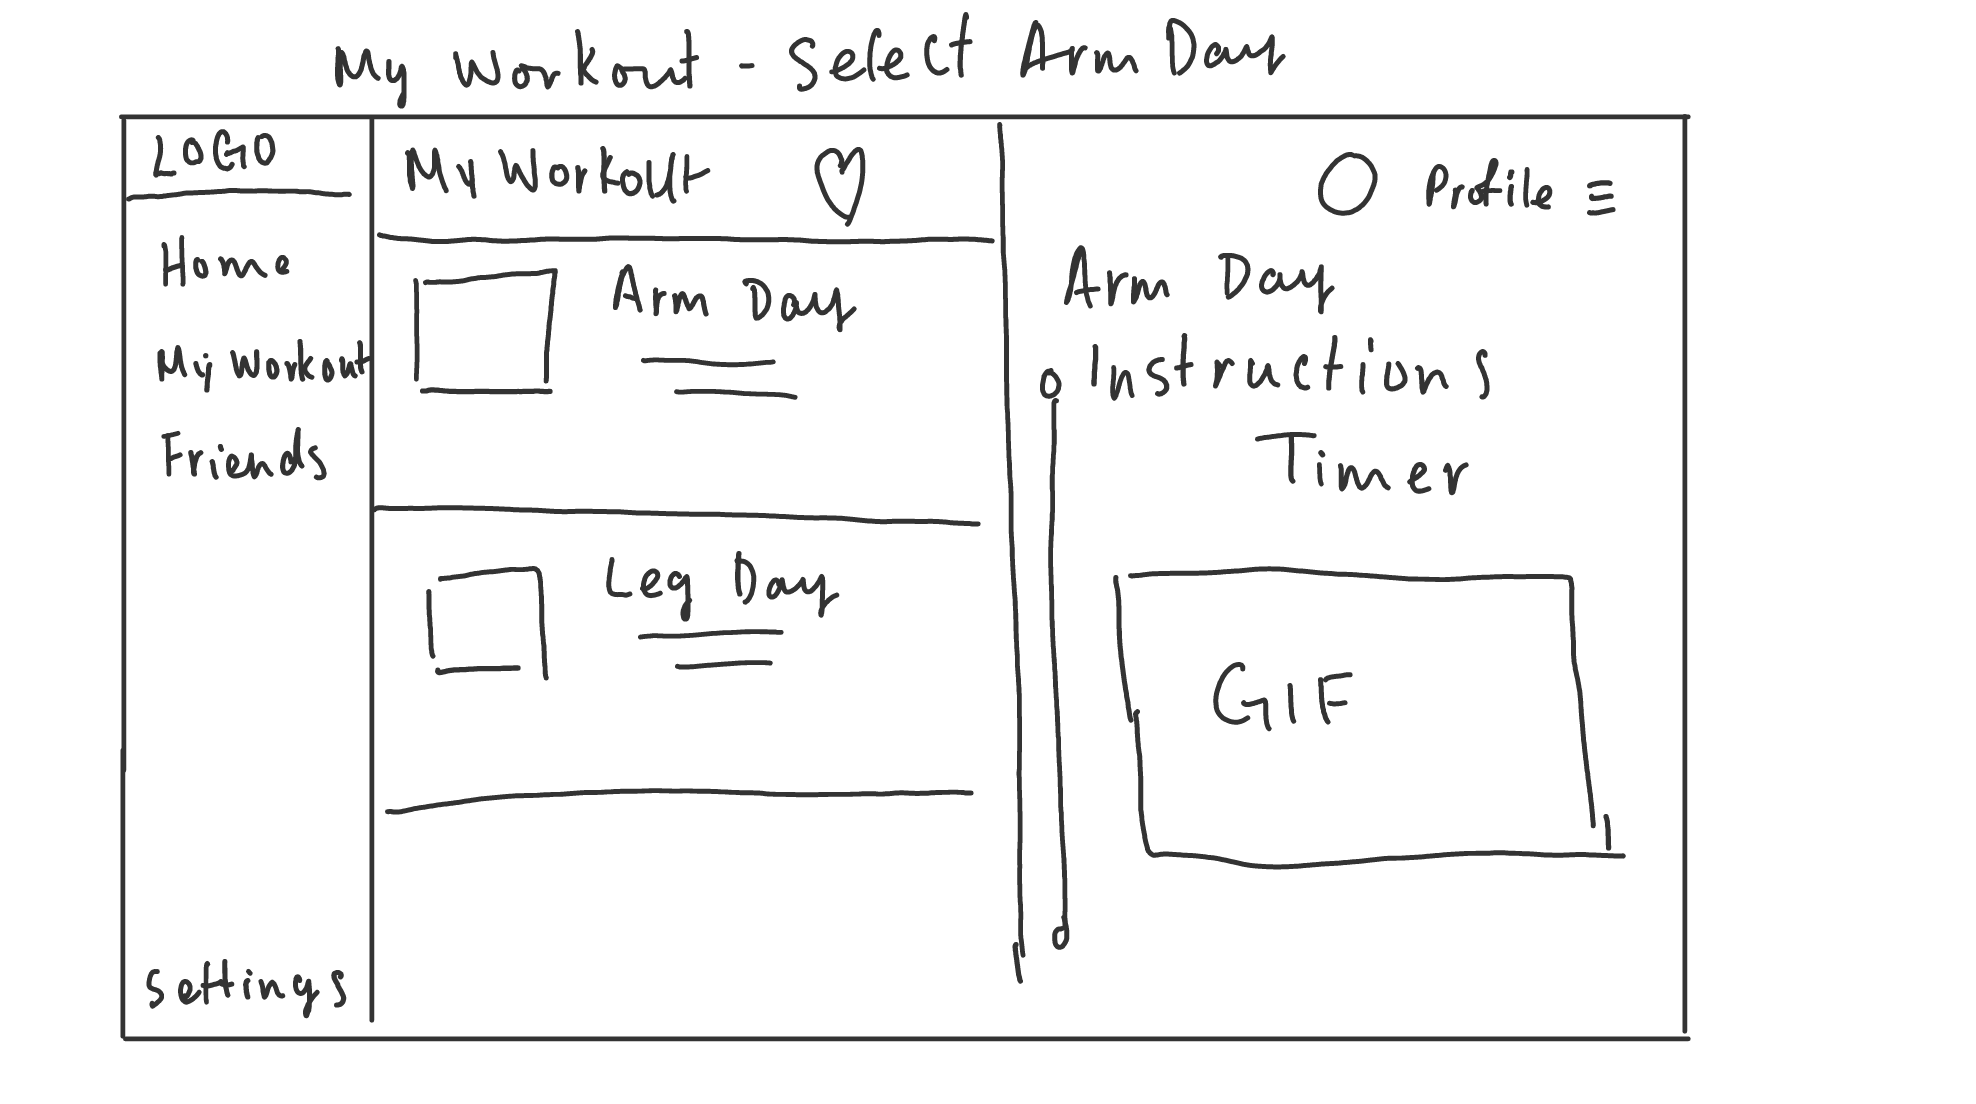 My Workout - Select Arm Day
LOGO
Home
My Workout
Friends
Settings
My Workout
Arm Day
Leg Day
Profile
Arm Day
Instructions
Timer
GIF